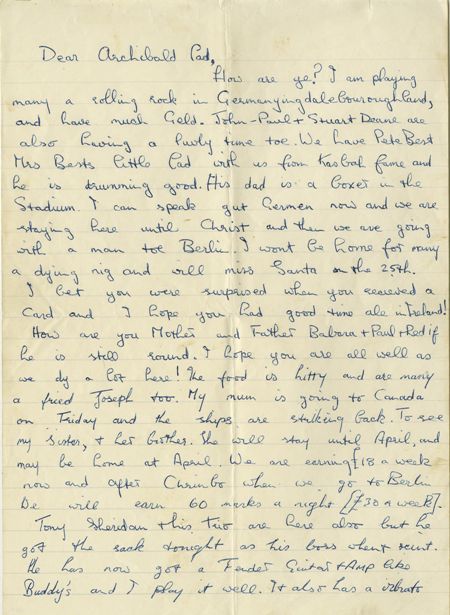 Dear Archibald Pad,
How are ye? I am playing
many a rolling rock in Germanyingdalebouroughland,
and have much Geld. John-Paul + Stuart Deane are
also having a luvly time toe. We have Pete Best
Mrs Bests little Lad with us from Kasbah fame and
he is drumming good. His dad is a boxer in the
Stadium. I can speak gut Germen now and we are
staying here until Christ and then we are going
with a man toe Berlin. I wont be home for many
a dying nig and will miss Santa on the 25th.
I bet you were surprised when you received a
Card and I hope you had good time ale in Ireland!
How are you Mother and Father Babara + Paul + Red if
he is still round. I hope you are all well as
we dy a lot here! The food is hitty and are many
a fried Joseph too. My mum is going to Canada
on Friday and the ships are stalking back. To see
my sister, + her brither. She will stay until April, and
may be home at April. We are earning £18 a week
now and after Chrimbo when we go to Berlin
We will earn 60 marks a night [£30 a week].
Tony Sheridan + his Trio are here also but he
got the sack tonight as his boss whent
He has now got a Fender Guitar + Amp like
Buddy's and I play it well. It also has a vibrato